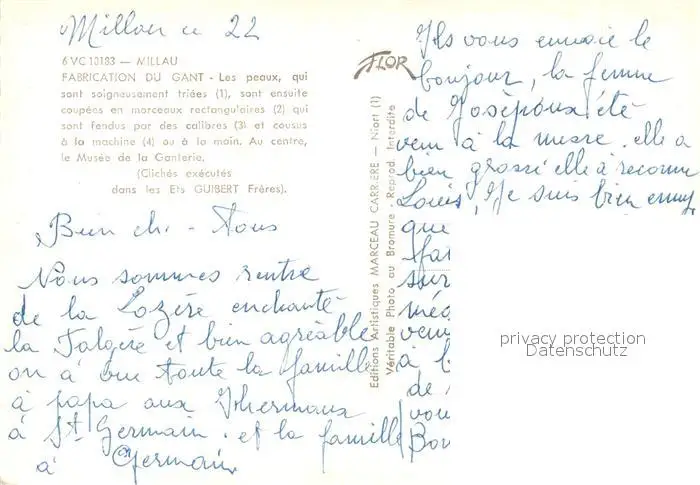 Millau ce 22
6 VC 10183 — MILLAU
FABRICATION DU GANT - Les peaux, qui
sont soigneusement triées (1), sont ensuite
coupées en morceaux rectangulaires (2) qui
sont fendus par des calibres (3) et cousus
à la machine (4) ou à la main. Au centre,
le Musée de la Ganterie.
(Clichés exécutés
dans les Ets GUIBERT Frères).
Bien ch - tous
Nous sommes rentre
de la Lozère enchanté
la Falgère et bien agréable
on à vue toute la famille
à papa aux
à St Germain. et la famille
à Germain
FLOR
Editions Artistiques MARCEAU CARRIÈRE — Niort (1)
Véritable Photo au Bromure - Reprod. Interdite
Ils vous envoie le
bonjour, la femme
de été
venu à la messe. elle a
bien grossi elle à reconnu
Louis, Je suis bien ennuy
que
sur
méd
venu
à
de
vou
Bon
privacy protection
Datenschutz